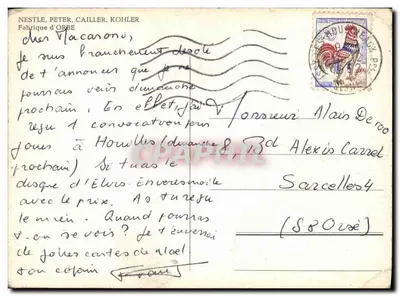 NESTLE, PETER, CAILLER, KOHLER
Fabrique d'ORBE
cher Macarono,
Je suis franchement désolé
de t'annoncer que je ne
pourrais venir dimanche
prochain. En effet, j'ai
reçu 1 convocation pour
jouer à Houilles (dimanche 8
prochain) Si tu as le
disque d'Elvis. Envoies moi le
avec le prix. As tu reçu
le mien. Quand pourras
t-on se voir? Je t'enverrai
de jolies cartes de Noël
ton copain
Monsieur Alain Deroo
8, Bd Alexis Carrel
Sarcelles 4
(S&Oise)